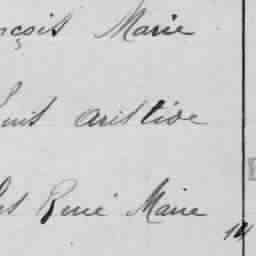 nçois Marie
aristide
René Marie
14